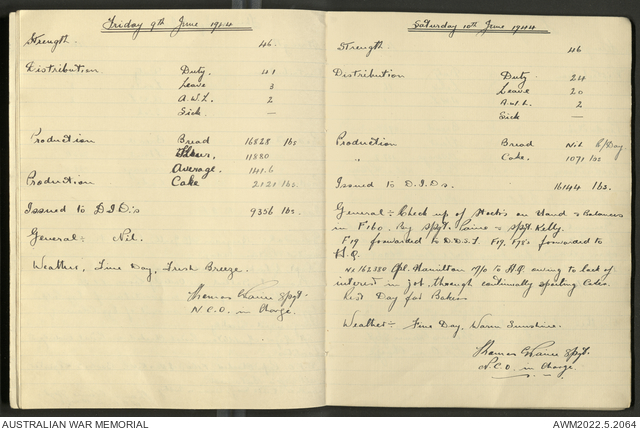 Friday 9th June 1944
Strength. 46.
Distribution Duty. 41
Leave 3
A.W.L. 2
Sick —
Production Bread 16828 lbs
Flour, 11880
Average. 141.6
Production Cake 2121 lbs.
Issued to D.I.D's 9356 lbs.
General:- Nil.
Weather, Fine Day, Fresh Breeze.
Thomas Sgt.
N.C.O. in Charge.
Saturday 10th June 1944
Strength 46
Distribution Duty. 24
Leave 20
A.W.L. 2
Sick —
Production Bread Nil R/Day
" Cake. 1071 lbs
Issued to D.I.Ds. 16144 lbs.
General:- Check up of Stocks on Hand & Balances
in F160. By S/Sgt. & S/Sgt Kelly.
F19 forwarded to D.D.S.T. F19, forwarded to
H.Q.
Cpl. Hamilton M/o to H.Q owing to lack of
interest in job, through continually spoiling Cakes.
Rest Day for Bakers
Weather:- Fine Day, Warm Sunshine.
Thomas S/Sgt.
N.C.O. in Charge.
AUSTRALIAN WAR MEMORIAL
AWM2022.5.2064